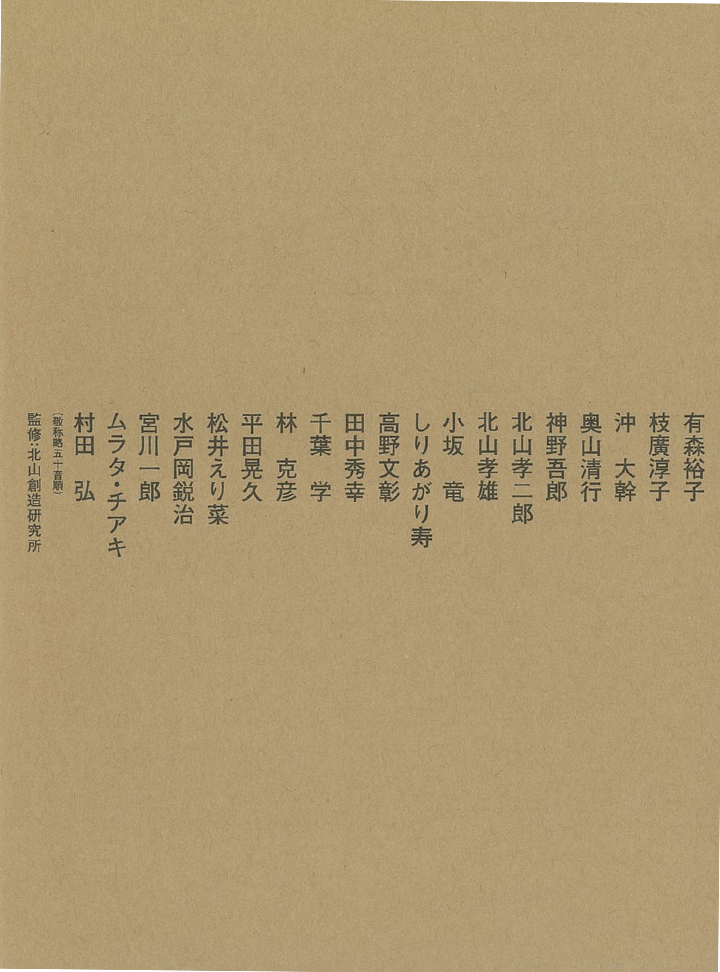 有森裕子
枝廣淳子
沖　大幹
奥山清行
神野吾郎
北山孝二郎
北山孝雄
小坂　竜
しりあがり寿
高野文彰
田中秀幸
千葉　学
林　克彦
平田晃久
松井えり菜
水戸岡鋭治
宮川一郎
ムラタ・チアキ
村田　弘
（敬称略五十音順）
監修：北山創造研究所